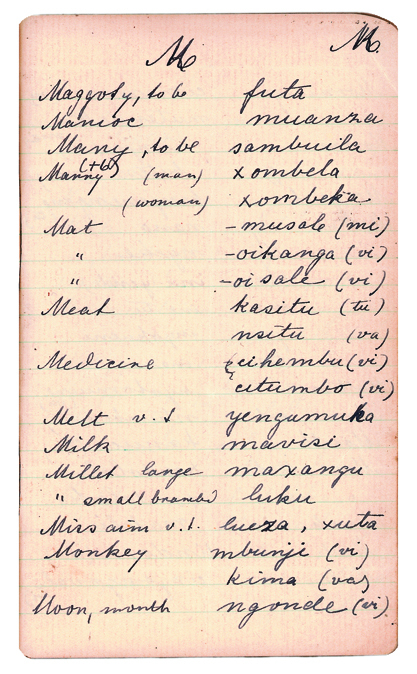 M M
Maggoty, to be futa
Manioc muanza
Many, to be sambuila
Marry (+ to) (man) xombela
(woman) xombeka
Mat - musale (mi)
" - oikanga (vi)
" - oi sale (vi)
Meat kasitu (tu)
nsitu (va)
Medicine { cihembu (vi)
citumbo (vi)
Melt v. t yengumuka
Milk mavisi
Millet large maxangu
" small luku
Miss aim v. t. lueza, xuta
Monkey mbunji (vi)
kima (va)
Moon, month ngonde (vi)